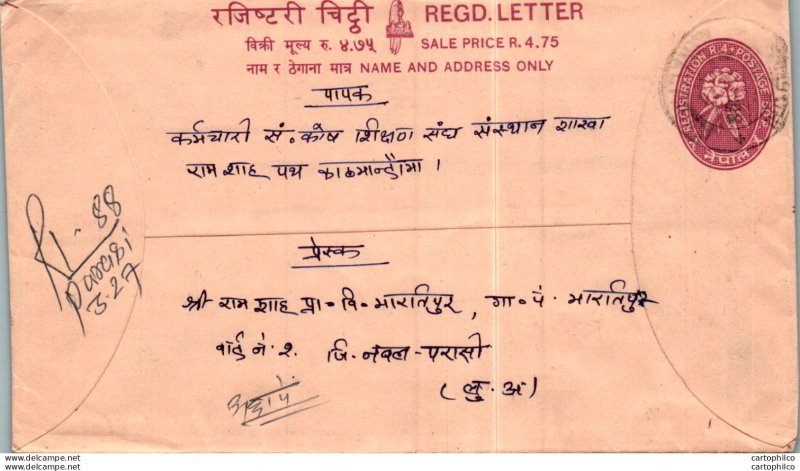 रजिष्टरी चिट्ठी REGD. LETTER
विक्री मूल्य रु. ४.७५ SALE PRICE R. 4.75
नाम र ठेगाना मात्र NAME AND ADDRESS ONLY
REGISTRATION R. 4 + POSTAGE
नेपाल
पापक
कर्मचारी सं. कोष शिक्षण संघ संस्थान शाखा
रामशाह पथ काठमान्डौमा ।
RL 88
Parasi
3.27
प्रेस्क
श्री रामशाह प्रा. वि. भारतिपुर, गा. पं. भारतिपुर
वार्ड नं २. जि. नवल-परासी
(लु. अं)
cartophilco
cartophilco